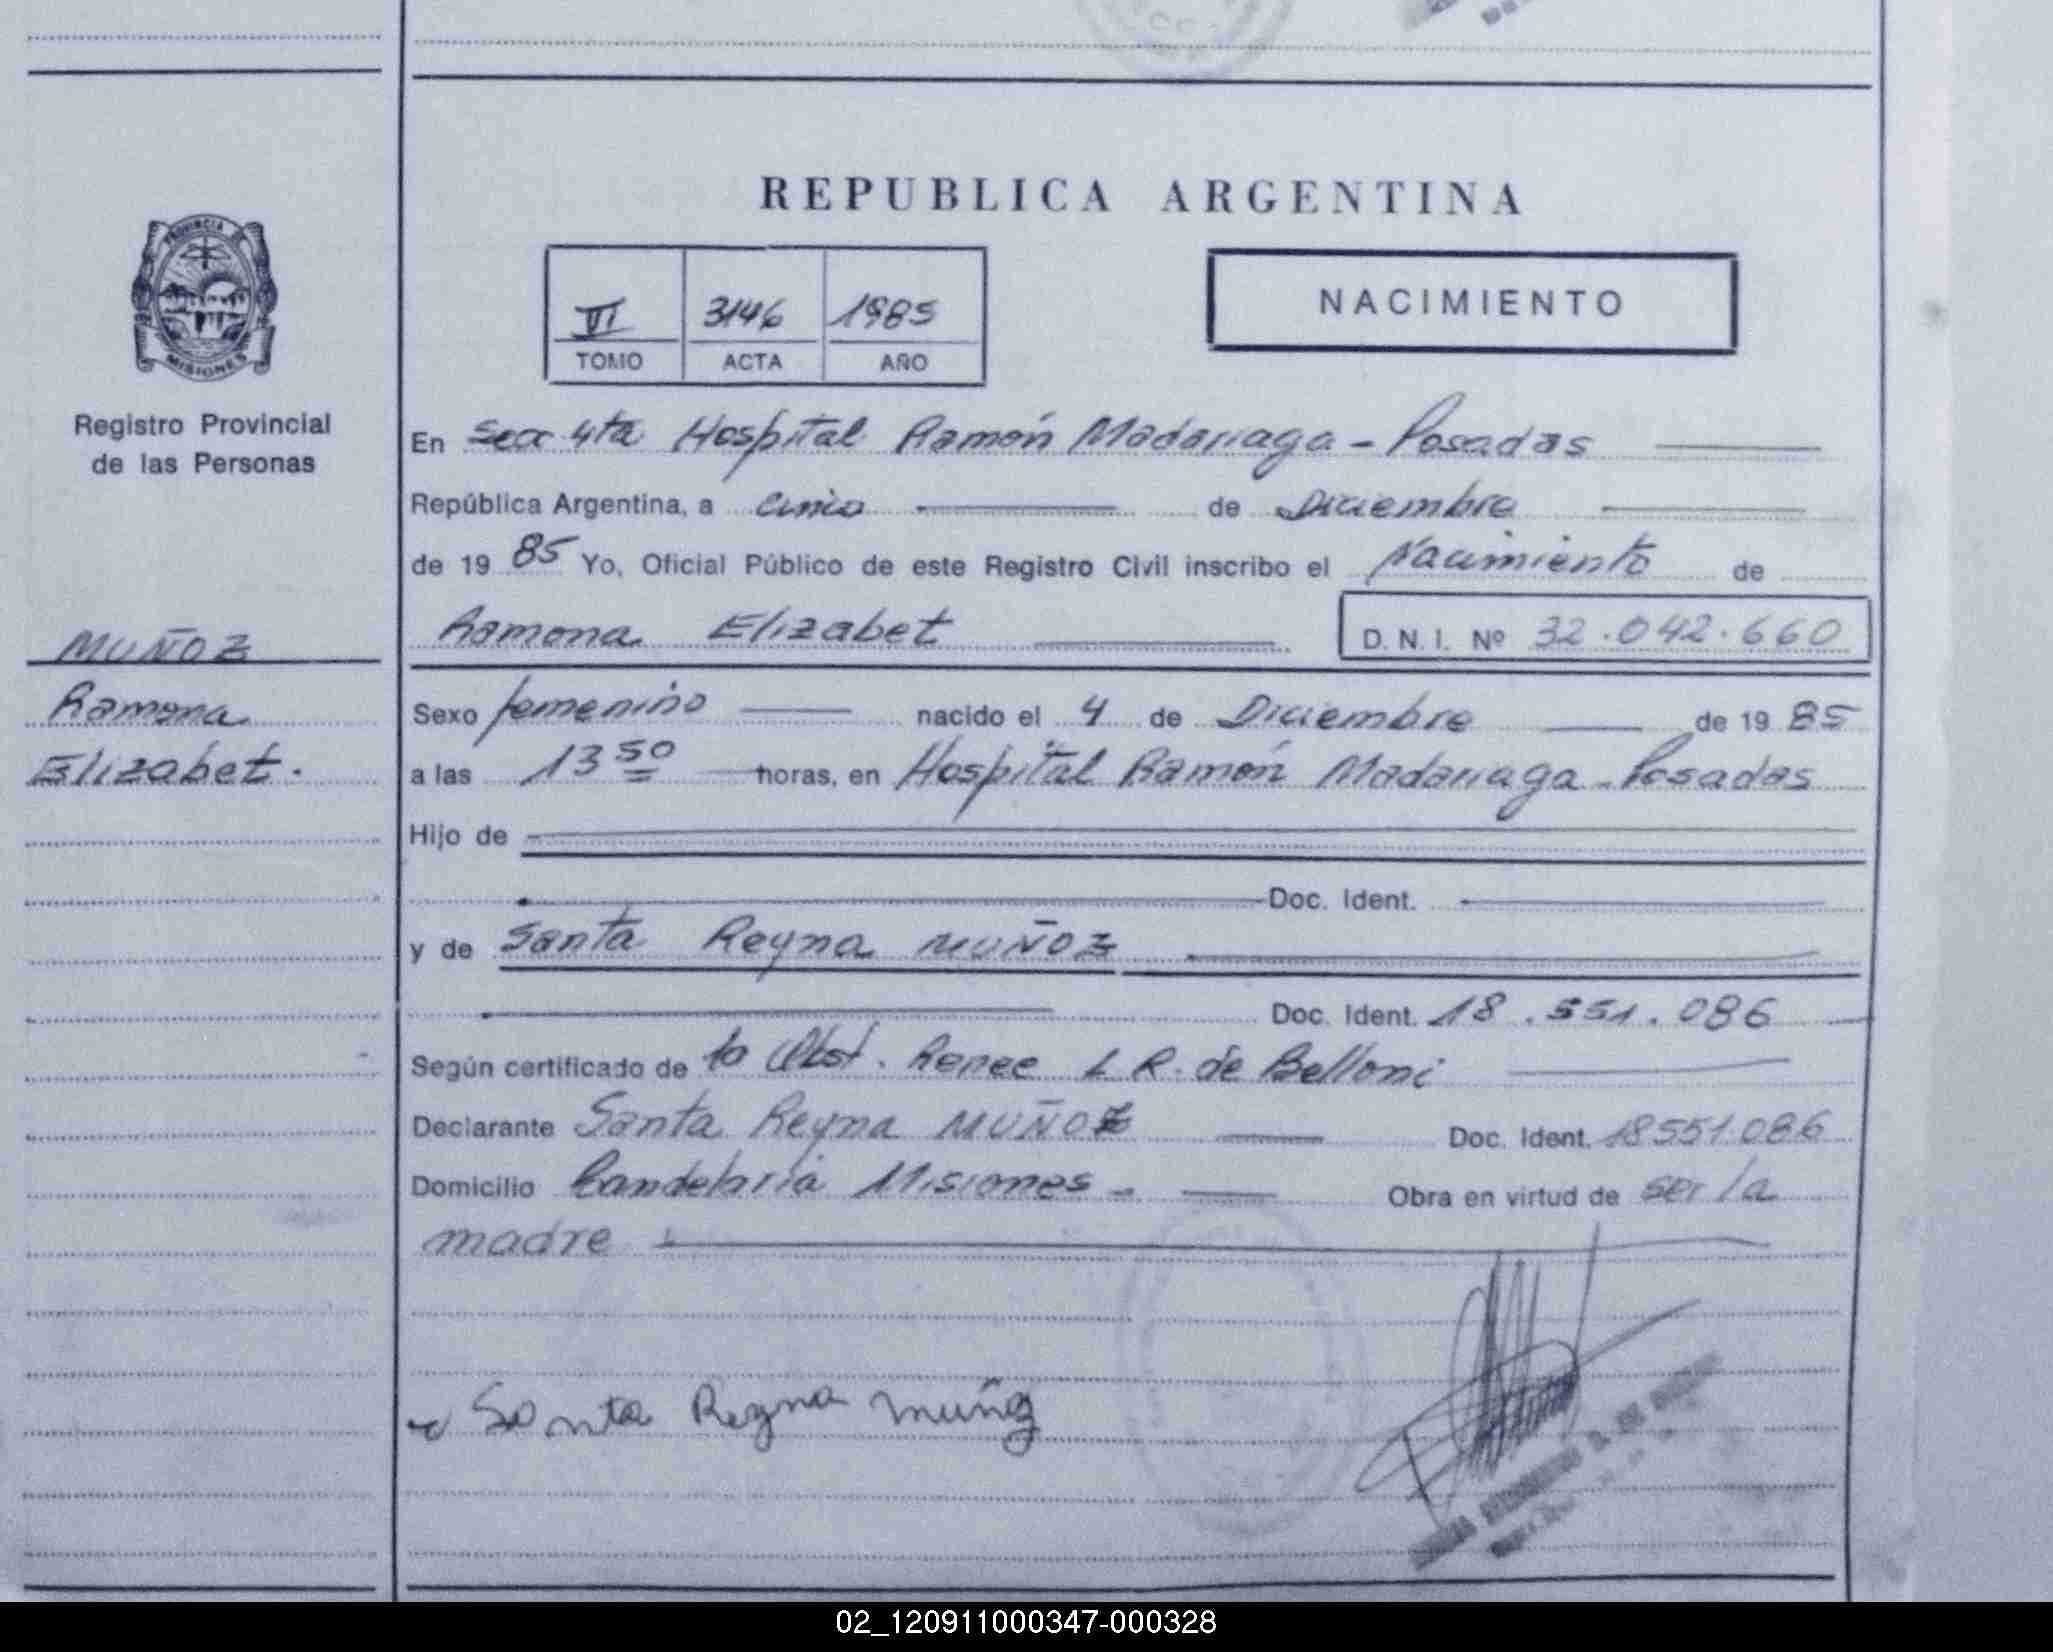 REPUBLICA ARGENTINA
PROVINCIA DE
MISIONES
Registro Provincial
de las Personas
VI 3146 1985
TOMO ACTA AÑO
NACIMIENTO
En Secc 4ta Hospital Ramón Madariaga - Posadas
República Argentina, a cinco de Diciembre
de 1985 Yo, Oficial Público de este Registro Civil inscribo el Nacimiento de
Ramona Elizabet D. N. I. Nº 32.042.660
MUÑOZ
Ramona
Elizabet.
Sexo femenino nacido el 4 de Diciembre de 1985
a las 13 50 horas, en Hospital Ramón Madariaga - Posadas
Hijo de
Doc. Ident.
y de Santa Reyna MUÑOZ
Doc. Ident. 18.551.086
Según certificado de la Obst. Renee L R. de Belloni
Declarante Santa Reyna MUÑOZ Doc. Ident. 18551.086
Domicilio Candelaria Misiones - Obra en virtud de ser la
madre
Santa Reyna muñoz
02_120911000347-000328